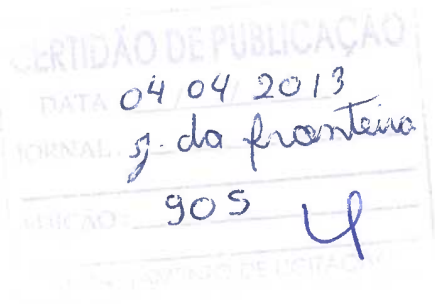 CERTIDÃO DE PUBLICAÇÃO
DATA 04/04/2013
JORNAL J. da fronteira
EDIÇÃO: 905
DE LICITAÇÃO